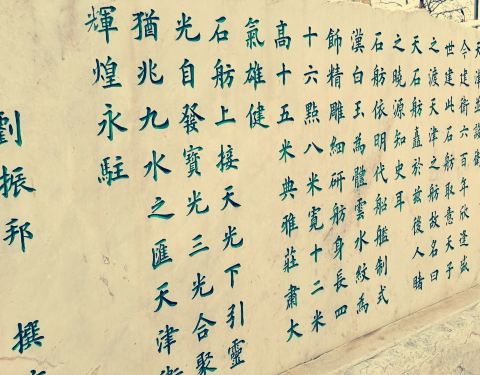 天津
今建衛六百年欣逢盛
世建此石舫取意天子
之渡天津之舫故名曰
天石舫矗於兹後人睹
之曉源知史耳
石舫依明代船艦制式
漢白玉為體雲水紋為
飾精雕細研舫身長四
十六點八米寬十二米
高十五米典雅莊肅大
氣雄健
石舫上接天光下引靈
光自發寶光三光合聚
猶兆九水之匯天津衛
輝煌永駐
劉振邦 撰